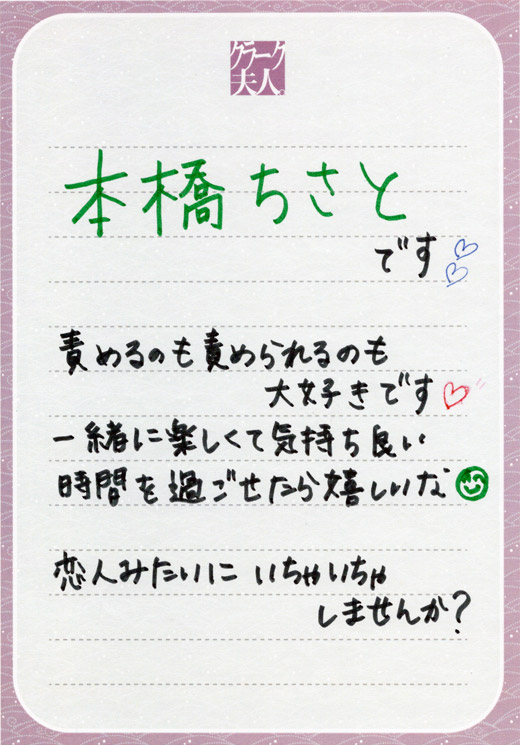 クラーク
夫人。
本橋ちさと
です♡
♡
責めるのも責められるのも
大好きです♡
一緒に楽しくて気持ち良い
時間を過ごせたら嬉しいな
恋人みたいに いちゃいちゃ
しませんか?